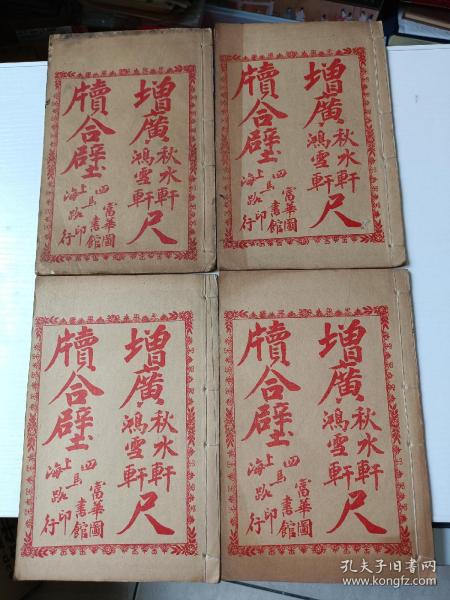 增廣秋水軒鴻雪軒尺
牘合璧
上海四馬路
富華圖書館
印行
增廣秋水軒鴻雪軒尺
牘合璧
上海四馬路
富華圖書館
印行
增廣秋水軒鴻雪軒尺
牘合璧
上海四馬路
富華圖書館
印行
增廣秋水軒鴻雪軒尺
牘合璧
上海四馬路
富華圖書館
印行
孔夫子旧书网
www.kongfz.com